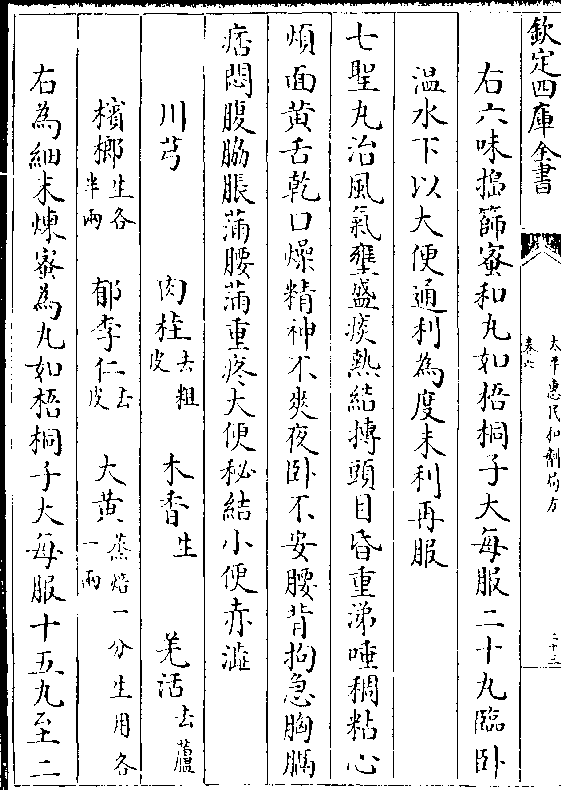 欽定四庫全書
太平惠民和劑局方
卷六
二十三
右六味搗篩蜜和丸如梧桐子大每服二十丸臨卧
溫水下以大便通利為度未利再服
七聖丸治風氣壅盛痰熱結搏頭目昏重涕唾稠粘心
煩面黄舌乾口燥精神不爽夜卧不安腰背拘急胸膈
痞悶腹脇脹滿腰滿重疼大便秘結小便赤澁
川芎　肉桂去粗皮　木香生　羌活去蘆
檳榔生各半兩　郁李仁去皮　大黄蒸焙一分生用各一兩
右為細末煉蜜為丸如梧桐子大每服十五丸至二